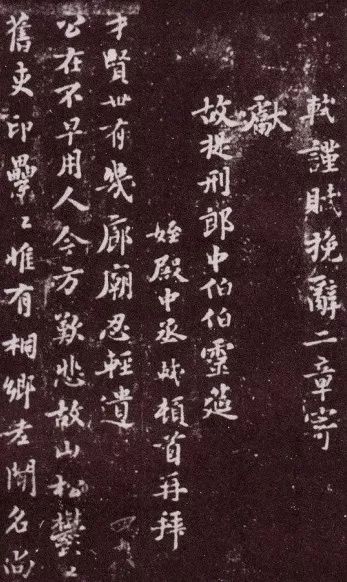 軾謹賦挽辭二章寄
獻
故提刑郎中伯伯靈筵
姪殿中丞軾頓首再拜
才賢世有幾廊廟忍輕遺
公在不早用人今方歎悲故山松鬱〻
舊吏印纍〻惟有桐鄉老聞名尚